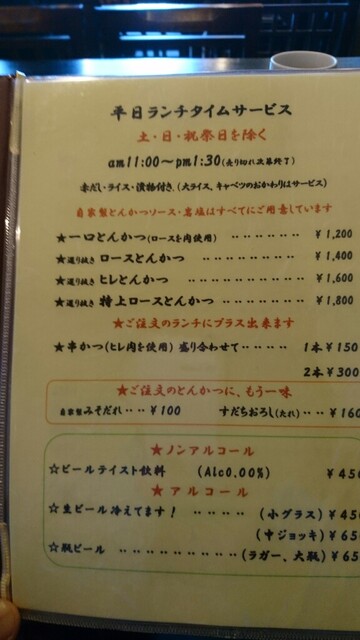 平日ランチタイムサービス
土・日・祝祭日を除く
am11:00〜pm1:30(売り切れ次第終了)
赤だし・ライス・漬物付き (大ライス、キャベツのおかわりはサービス)
自家製とんかつソース・岩塩はすべてにご用意しています
★一口とんかつ(ロースを肉使用) ・・・・・・ ¥1,200
★選り抜き ロースとんかつ ・・・・・・・・ ¥1,400
★選り抜き ヒレとんかつ ・・・・・・・・・ ¥1,600
★選り抜き 特上ロースとんかつ ・・・・・・ ¥1,800
★ご注文のランチにプラス出来ます
★串かつ(ヒレ肉を使用) 盛り合わせて・・・・ 1本¥150
2本¥300
★ご注文のとんかつに、もう一味
自家製みそだれ・・・¥100 すだちおろし(たれ)・・・¥160
★ノンアルコール
☆ビールテイスト飲料 (Alc0.00%) ¥450
★アルコール
☆生ビール冷えてます! ・・・・・ (小グラス)¥450
(中ジョッキ)¥65
☆瓶ビール ・・・・・・・・・・・(ラガー、大瓶)¥65